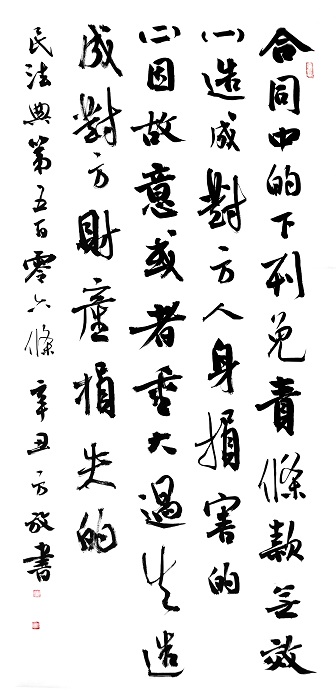 合同中的下列免責條款無效
(一)造成對方人身損害的
(二)因故意或者重大過失造
成對方財產損失的
民法典第五百零六條 辛丑 方放書